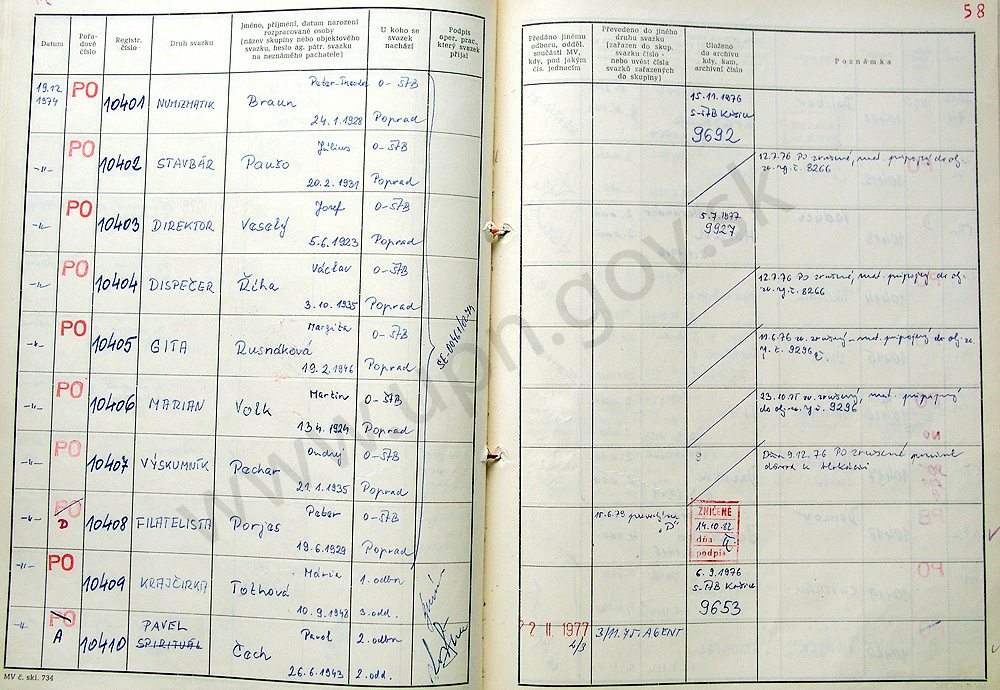 58
Datum
Pořadové číslo
Registr. číslo
Druh svazku
Jméno, příjmení, datum narození rozpracované osoby
[název skupiny nebo objektového svazku, heslo ag. pátr. svazku na neznámého pachatele]
U koho se svazek nachází
Podpis oper. prac., který svazek přijal
Předáno jinému odboru, odděl. součásti MV, kdy, pod jakým čís. jednacím
Převedeno do jiného druhu svazku
[zařazen do skup. svazku číslo - nebo uvést čísla svazků zařazených do skupiny]
Uloženo do archivu kdy, kam, archivní číslo
Poznámka
19.12. 1974 PO 10401 NUMIZMATIK Braun 24.1.1928 O-ŠTB Poprad
15.11.1976
9692
-"- PO 10402 STAVBÁR Július Paušo 20.2.1931 O-ŠTB Poprad
12.7.76 PO zrušené, mat. pripojený do obj. zv. reg. č. 8266
-"- PO 10403 DIREKTOR Jozef Veselý 5.6.1923 O-ŠTB Poprad
5.7.1977
9927
-"- PO 10404 DISPEČER Václav Říha 3.10.1935 O-ŠTB Poprad
12.7.76 PO zrušené, mat. pripojený do obj. zv. reg. č. 8266
-"- PO 10405 GITA Margita Rusnáková 19.2.1946 O-ŠTB Poprad
11.6.76 zv. zrušený
9296
-"- PO 10406 MARIAN Martin Volk 13.4.1924 O-ŠTB Poprad
23.10.75 zv. zrušený, mat. pripojený do obj. 9296
-"- PO 10407 VÝSKUMNÍK Ondrej Pachar 21.1.1935 O-ŠTB Poprad
Dňa 9.12.76 PO zrušené
-"- PO D 10408 FILATELISTA Peter Porjes 19.6.1929 O-ŠTB Poprad
15.6.79 "D"
ZNIČENÉ
14.10.82
dňa
podpis
-"- PO 10409 KRAJČÍRKA Mária Tóthová 10.9.1948 1. odbor 3. odd.
6.9.1976
9653
-"- PO A 10410 PAVEL SPIRITUÁL Pavol Čech 26.6.1943 2. odbor 2. odd.
2 II. 1977
AGENT
MV č. skl. 734
www.upn.gov.sk